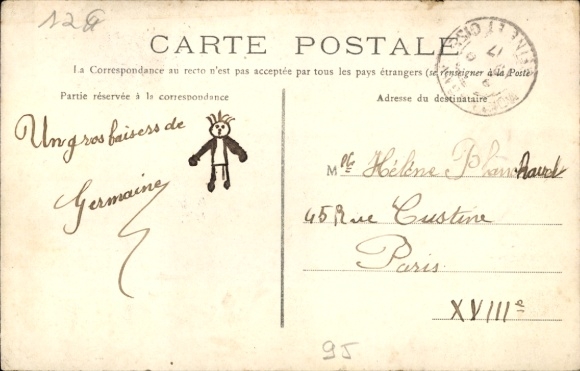 12 G
CARTE POSTALE
La Correspondance au recto n'est pas acceptée par tous les pays étrangers (se renseigner à la Poste
Partie réservée à la correspondance
Adresse du destinataire
Un gros baisers de
Germaine
Mlle Hélène
45 Rue Custine
Paris
XVIIIe
95
SEINE ET OISE
17